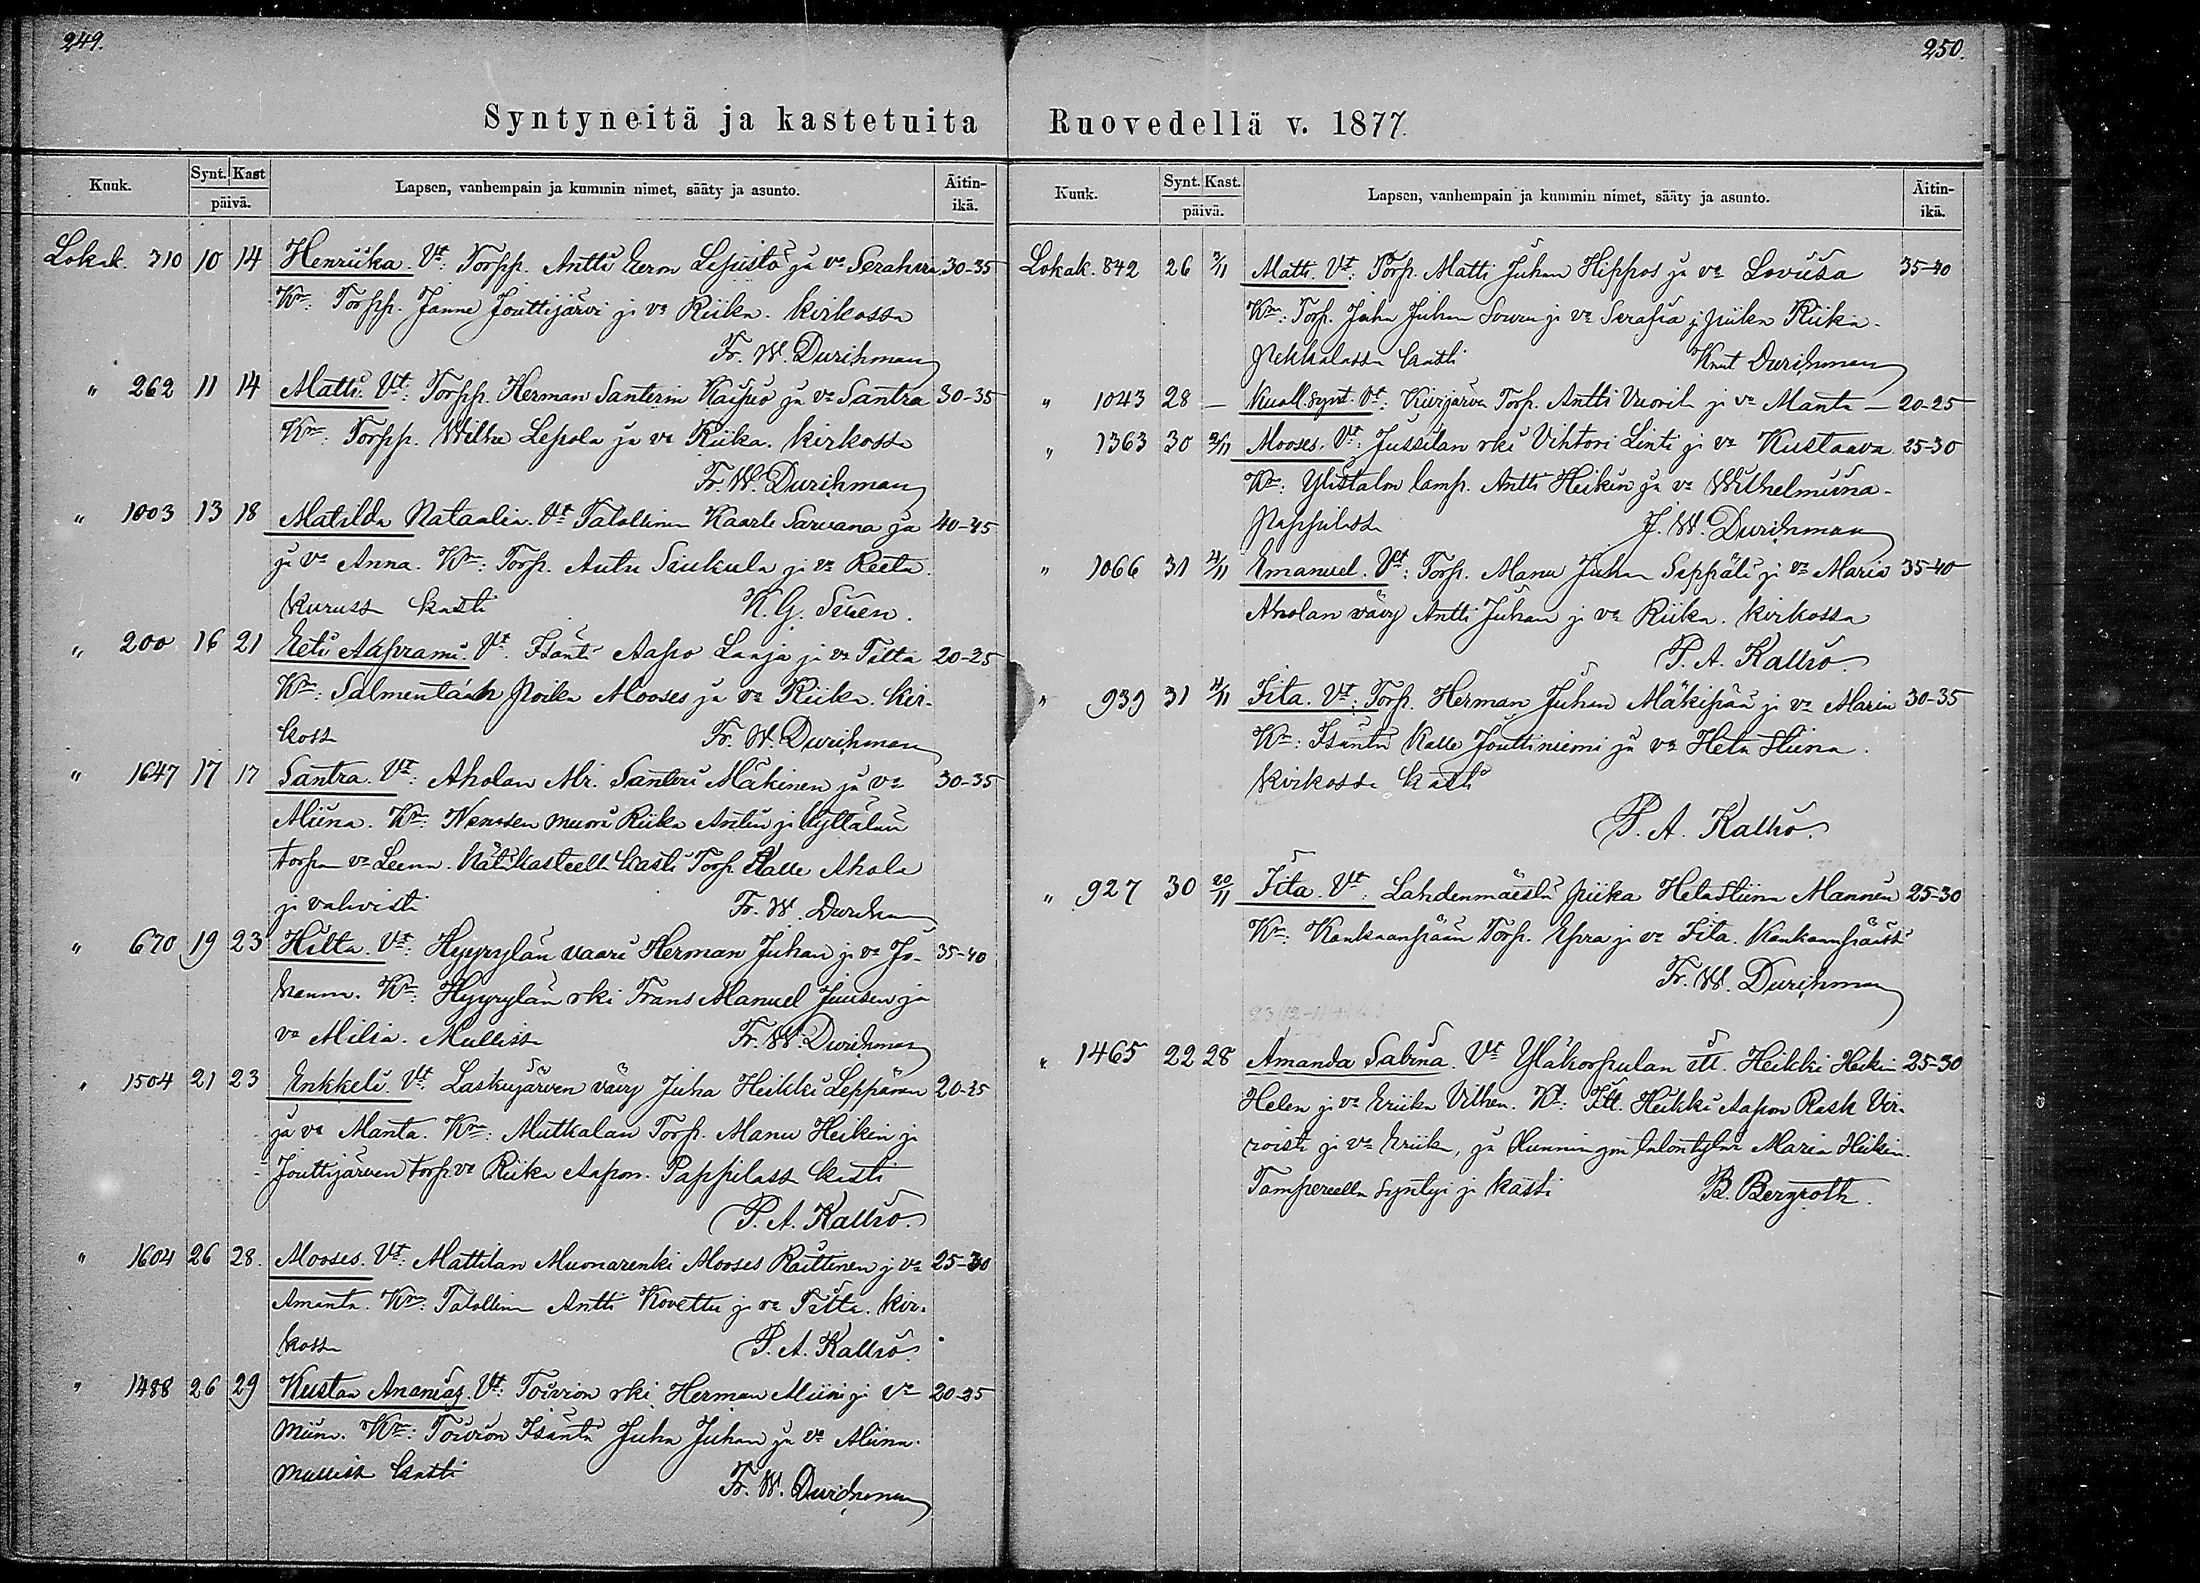 249.
Syntyneitä ja kastetuita
Kuuk. Synt. Kast päivä. Lapsen, vanhempain ja kummin nimet, sääty ja asunto. Äitin-ikä.
Lokak. 710 10 14 Henriika. Vt: Torpp. Antti Herm Lepistö ja vo Serahvia 30-35
Km: Torpp. Janne Jouttijärvi ja vo Riika. Kirkossa
Fr. W. Durchman
" 262 11 14 Matti. Vt: Torpp. Herman Santerin Kaijus ja vo Santra 30-35
Km: Torpp. Wilhe Lepola ja vo Riika. Kirkossa
Fr. W. Durchman
" 1003 13 18 Matilda Nataalia. Vt Talollinen Kaarle Sarvana ja 40-45
ja vo Anna. Km: Torp. Antu Siukula ja vo Reeta.
Kuruss kasti K. G. Siren.
" 200 16 21 Eeti Aaprami. Vt. Isäntä Aapo Laaja ja vo Tilta 20-25
Km: Salmentaank poika Mooses ja vo Riika. Kir-
koss Fr. W. Durchman
" 1647 17 17 Santra. Vt: Aholan Mr. Santeri Mäkinen ja vo 30-35
Miina. Km: muori Riika Antin ja Kyttälän
torpan vo Leena. Hätäkasteella kasti Torp. Kalle Ahola
ja vahvisti Fr. W. Durchman
" 670 19 23 Hilta. Vt: Hyyrylän vaari Herman Juhan ja vo Jo- 35-40
hanna. Km: Hyyrylän rki Frans Manuel Juusen ja
vo Milia. Mullissa Fr. W. Durchman
" 1504 21 23 Enkkeli. Vt: Laskujärven vävy Juha Heikki Leppänen 20-25
ja vo Manta. Km: Mutkalan Torp. Manu Heikin ja
Jouttijärven torp. vo Riika Aapon. Pappilassa kasti
P. A. Kallio.
" 1604 26 28. Mooses. Vt: Mattilan Muonarenki Mooses Raittinen ja vo 25-30
Amanta. Km: Talollinen Antti Kovettu ja vo Tilta. Kir-
kossa P. A. Kallio.
" 1488 26 29 Kustaa Ananias. Vt: Toivion rki Herman Miini ja vo 20-25
Miina. Km: Toivion Isäntä Juha Juhan ja vo Miina.
Mullissa kasti Fr. W. Durchman
250.
Ruovedellä v. 1877.
Kuuk. Synt. Kast. päivä. Lapsen, vanhempain ja kummin nimet, sääty ja asunto. Äitin-ikä.
Lokak. 842 26 2/11 Matti. Vt: Torp. Matti Juhan Hippos ja vo Loviisa 35-40
Km: Torp. Juha Juhan Souru ja vo Serafia ja piika Riika.
Pekkalassa kasti Knut Durchman
" 1043 28 — Kuoll. synt. Vt: Kivijärven Torp. Antti Vuorih ja vo Manta — 20-25
" 1363 30 2/11 Mooses. Vt: Jussilan rki Vihtori Linti ja vo Kustaava 25-30
Km: Ylistalon lamp. Antti Heikin ja vo Wilhelmiina.
Pappilassa F. W. Durchman
" 1066 31 4/11 Emanuel. Vt: Torp. Manu Juhan Seppälä ja vo Maria 35-40
Aholan vävy Antti Juhan ja vo Riika. Kirkossa
P. A. Kallio
" 939 31 4/11 Fita. Vt: Torp. Herman Juhan Mäkipää ja vo Maria 30-35
Km: Isäntä Kalle Jouttiniemi ja vo Heta Stiina.
Kirkossa kasti
P. A. Kallio.
" 927 30 20/11 Fita. Vt: Lahdenmäeslä piika Heta Stiina Mannin 25-30
Km: Kankaanpään Torp. Epra ja vo Fita. Kankaanpäässä
Fr. W. Durchman
" 1465 22 28 Amanda Sabina. Vt Yläkorpulan itt. Heikki Heikin 25-30
Helen ja vo Eriika Vilhen. Kt: Itt. Heikki Aapon Rask Vir-
roista ja vo Eriika, ja Hunningon talontytär Maria Heikin.
Tampereella syntyi ja kasti B. Bergroth.